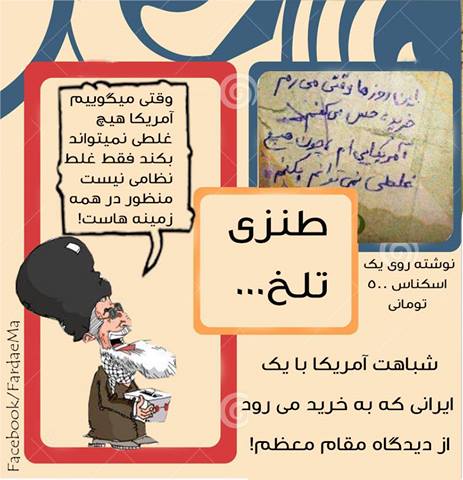 این روزها وقتی می رم
خرید، حس می‌کنم
آمریکایی‌ام، چون هیچ
غلطی نمی‌توانم بکنم
وقتی میگوییم
آمریکا هیچ
غلطی نمیتواند
بکند فقط غلط
نظامی نیست
منظور در همه
زمینه هاست!
طنزی
تلخ...
نوشته روی یک
اسکناس ۵۰۰
تومانی
شباهت آمریکا با یک
ایرانی که به خرید می رود
از دیدگاه مقام معظم!
Facebook/FardaeMa